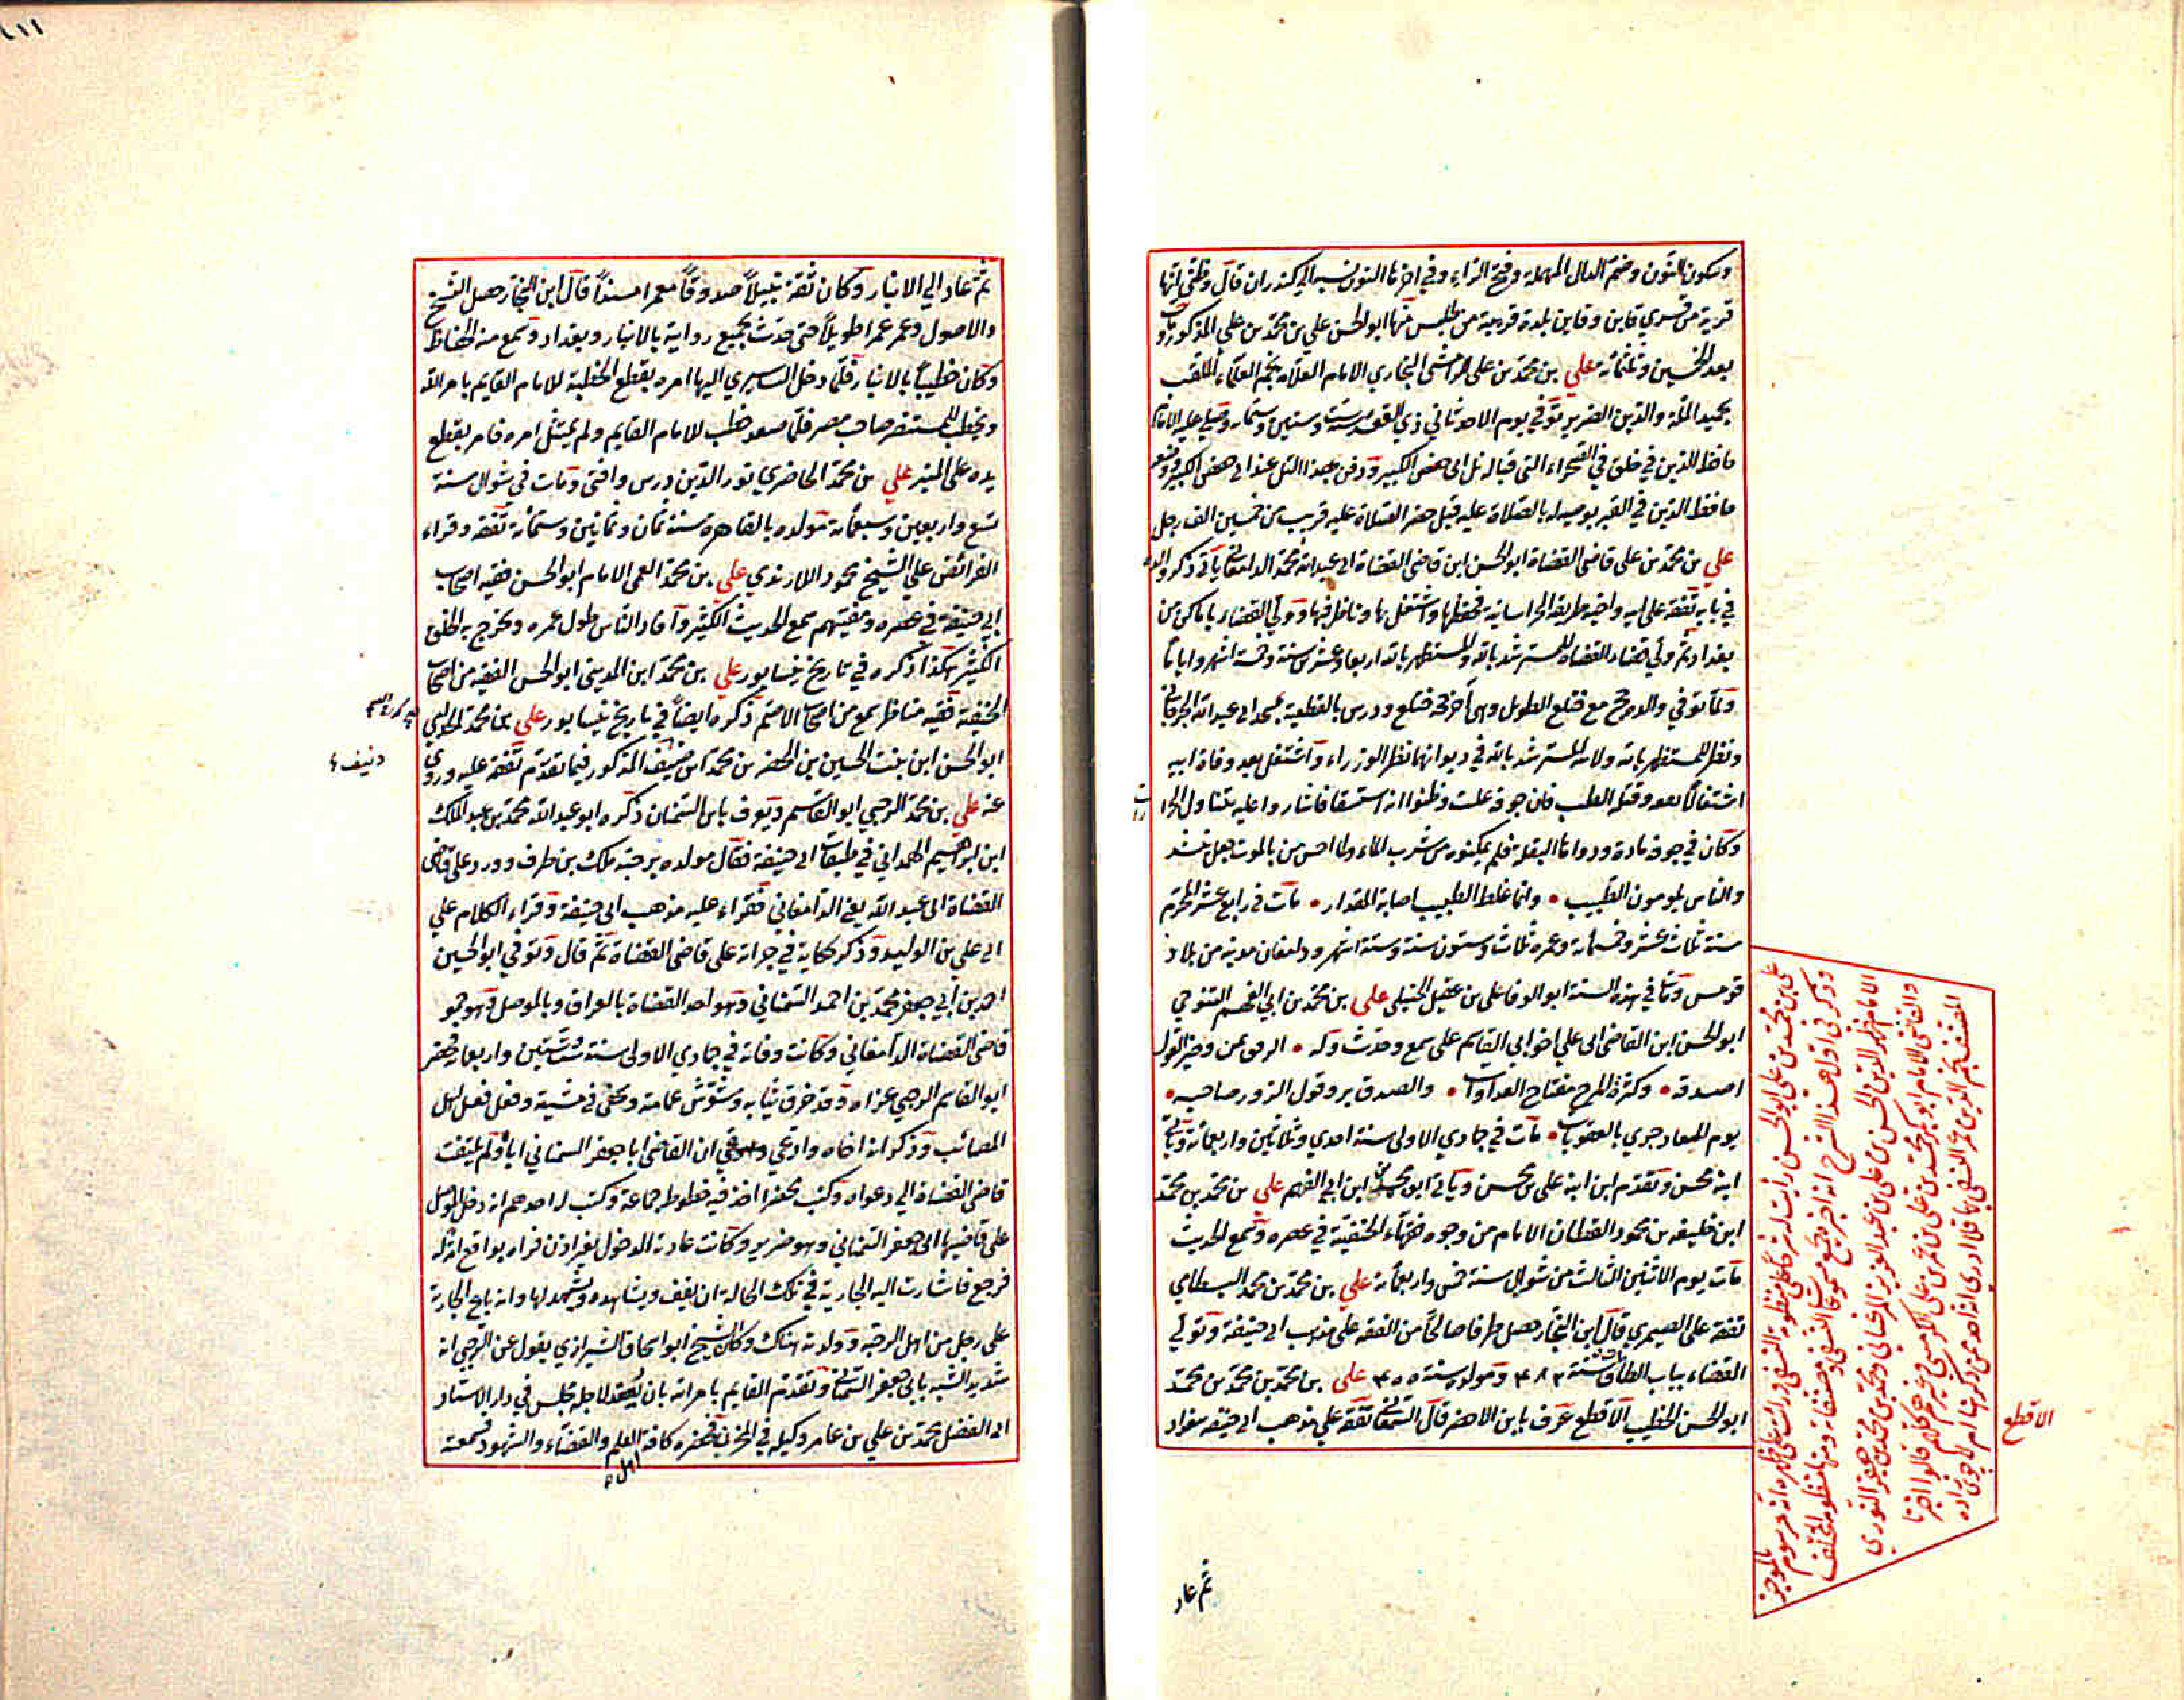 وسكون النون وضم الدال المهملة وفتح الراء وفي اخرها النون نسبة الي كندران قال وظني انها
قرية من قري قاين وقاين بلدة قريبة من طبس منها ابو الحسن علي بن محمد بن علي المذكور مات
بعد الخمسين وثلثمائة علي بن محمد بن علي الرامشي البخاري الامام العلامة نجم العلماء الملقب
بحميد الملة والدين الضرير توفي يوم الاحد ثاني ذي القعدة سنة ست وستين وستمائة وصلي عليه الامام
حافظ الدين في خلق في الصحراء التي قبالة تل ابي حفص الكبير ودفن بهذا التل عند ابي حفص الكبير ووضعه
حافظ الدين في القبر بوصيه له بالصلاة عليه قيل حضر الصلاة عليه قريب من خمسين الف رجل
علي بن محمد بن علي قاضي القضاة ابو الحسن ابن قاضي القضاة ابي عبد الله محمد الدامغاني ياتي ذكر والده
في بابه تفقه علي ابيه واخيه طريقة الخراسانية فحفظها واشتغل بها وناظر فيها وولي القضاء باماكن من
بغداد ثم ولي قضاء القضاة للمسترشد بالله والمستظهر بالله اربعا وعشرين سنة وخمسة اشهر واياما
ولما توفي والده حج مع قتلغ الطويل وهي آخر حجة قتلغ ودرس بالقطيعة بمسجد ابي عبد الله الجرجاني
ونظر للمستظهر بالله ولابنه المسترشد بالله في ديوانهما نظر الوزراء واشتغل بعد وفاة ابيه
اشتغالا بعد وقتله الطب فان جوفه علت وظنوا انه استسقا فاشاروا عليه بتناول الحرارات
وكان في جوفه مادة ودواها البقلة فلم يمكنوه من شرب الماء ولما احس من بالموت جعل ينشد
والناس يلومون الطبيب • وانما غلط الطبيب اصابة المقدار • مات في رابع عشر المحرم
سنة ثلاث عشر وخمسمائة وعمره ثلاث وستون سنة وستة اشهر ودامغان مدينة من بلاد
قومس ومات في هذه السنة ابو الوفا علي بن عقيل الحنبلي علي بن محمد بن ابي الفهم التنوخي
ابو الحسن ابن القاضي ابي علي اخو ابي القاسم علي سمع وحدث وله • الرفق يمن وخير القول
اصدقه • وكثرة المزح مفتاح العداوات • والصدق بر وقول الزور صاحبه •
يوم المعاد جري بالعقوبات • مات في جمادي الاولي سنة احدي وثلاثين واربعمائة وياتي
ابنه محسن وتقدم ابن ابنه علي بن محسن وياتي ابو محمد ابن ابي الفهم علي بن محمد بن محمد
ابن خليفه بن محمود القطان الامام من وجوه فقهاء الحنفية في عصره وسمع الحديث
مات يوم الاثنين الثالث من شوال سنة خمس واربعمائة علي بن محمد بن محمد البسطامي
تفقه علي الصيمري قال ابن النجار حصل طرفا صالحا من الفقه علي مذهب ابي حنيفة وتولي
القضاء بباب الطاق مات سنة ٤٨٣ ومولده سنة ٤٠٥ علي بن محمد بن محمد بن محمد
ابو الحسن الخطيب الاقطع عرف بابن الاخضر قال السمعاني تفقه علي مذهب ابي حنيفه ببغداد
علي بن محمد بن علي ابو الحسن رأيت له شرحا علي منظومة النسفي ورأيت علي ظهره انه مرسوم بالموجز
وذكر في اول هذا الشرح انه اخبره بجميع مسموعات النسفي ومصنفاته ومنها منظومة الخلاف
الامام ظهير الدين الحسن بن علي بن عبد العزيز المرغيناني ومحمد بن محمد بن جعفر النوري
والقاضي الامام ابو بكر محمد بن علي بن عمر بن علي الكرميني وغيرهم كلهم قالوا اخبرنا
المصنف نجم الدين عمر النسفي بها فلا ادري انه احد ممن ذكر هنا ام لا جوي زاده
الاقطع
ثم عاد
ثم عاد الي الانبار وكان ثقة نبيلا صدوقا معمرا مسندا قال ابن النجار حصل النسخ
والاصول وعمر عمرا طويلا حتي حدث بجميع رواية بالانبار وبغداد وسمع منه الحفاظ
وكان خطيبا بالانبار فلما دخل البساسيري اليها امره بقطع الخطبة للامام القايم بامر الله
ويخطب للمستنصر صاحب مصر فلما صعد خطب للامام القايم ولم يمتثل امره فامر بقطع
يده علي المنبر علي بن محمد الحاضري نور الدين درس وافتي ومات في شوال سنة
تسع واربعين وسبعمائة مولده بالقاهرة سنة ثمان وثمانين وستمائة تفقه وقراء
الفرائض علي الشيخ محمود اللارندي علي بن محمد العمي الامام ابو الحسن فقيه اصحاب
ابي حنيفة في عصره ومفتيهم سمع الحديث الكثير وافاد الناس طول عمره وتخرج به الخلق
الكثير هكذا ذكره في تاريخ نيسابور علي بن محمد ابن المديني ابو الحسن الفقيه من اصحاب
الحنيفة فقيه مناظر سمع من اصحاب الاصم ذكره ايضا في تاريخ نيسابور علي بن محمد
ابو الحسن ابن بنت الحسين بن الخضر بن محمد ابن ضنيف المذكور فيما تقدم تفقه عليه وروي
دنيف ٤
عنه علي بن محمد الرحبي ابو القاسم ويعرف بابن السمنان ذكره ابو عبد الله محمد بن عبد الملك
ابن ابراهيم الهمداني في طبقات ابي حنيفة فقال مولده برحبة ملك بن طرف وورد علي قاضي
القضاة ابي عبد الله يعني الدامغاني فقراء عليه مذهب ابي حنيفة وقراء الكلام علي
ابي علي بن الوليد وذكر حكاية في جراته علي قاضي القضاة ثم قال وتوفي ابو الحسين
احمد بن ابي جعفر محمد بن احمد السمناني وهو احد القضاة بالعراق وبالموصل وهو حمو
قاضي القضاة الدامغاني وكانت وفاته في جمادي الاولي سنة ست وستين واربعمائة فحضر
ابو القاسم الرحبي عزاه وقد خرق ثيابه وشوش عمامته وتحفي في مشيته وفعل فعل اهل
المصائب وذكر انه اخاه وادعي ان القاضي ابا جعفر السمناني اباه ولم يلتفت
قاضي القضاة الي دعواه وكتب محضرا اخذ فيه خطوط جماعة وكتب له احدهم انه دخل الموصل
علي قاضيها ابي جعفر السمناني وهو ضرير وكانت عادته الدخول بغير اذن فراه يواقع امة له
فرجع فاشارت اليه الجارية في تلك الحالة ان يقف ويشاهده ويشهد لها وانه باع الجارية
علي رجل من اهل الرحبة وولدته هناك وكان الشيخ ابو اسحاق الشيرازي يقول عن الرحبي انه
شديد الشبه بابي جعفر السمناني وتقدم القايم بامر الله بان يعقد لاجله مجلس في دار الاستاد
ابي الفضل محمد بن علي بن عامر وكيله في المخزن فحضره كافة اهل العلم والقضاة والشهود فسمعته